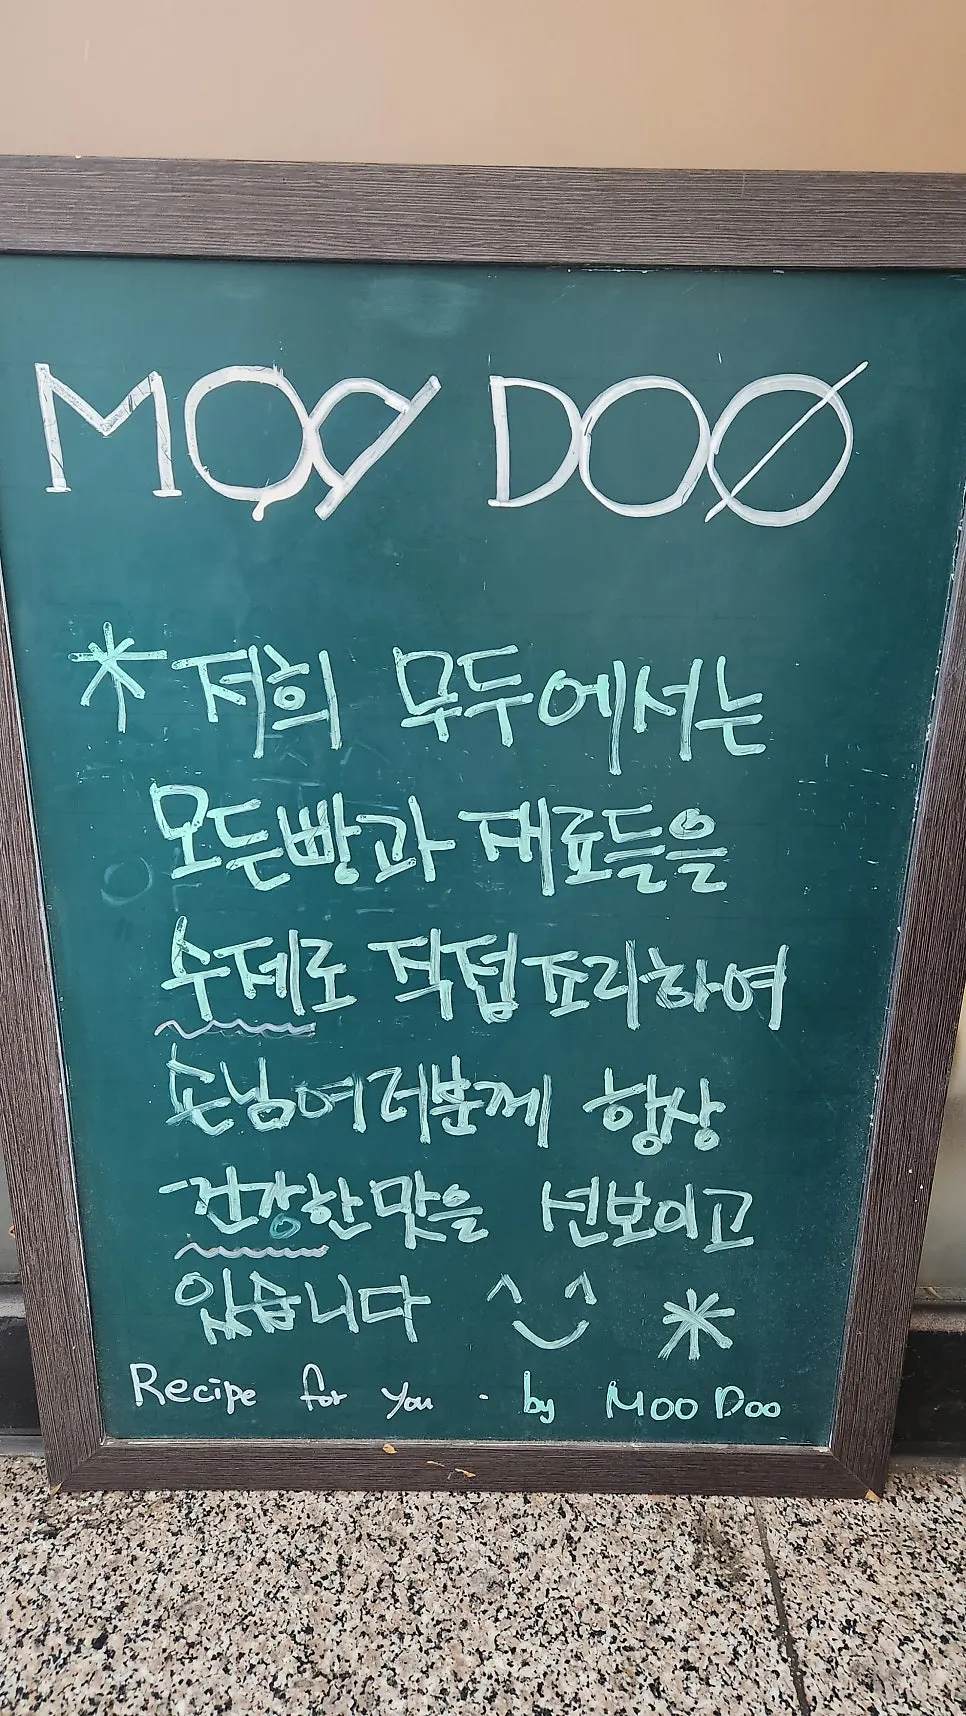 MOO DOO
* 저희 모두에서는
모든빵과 재료들을
수제로 직접조리하여
손님여러분께 항상
건강한맛을 선보이고
있습니다 ^‿^ *
Recipe for you · by Moo Doo